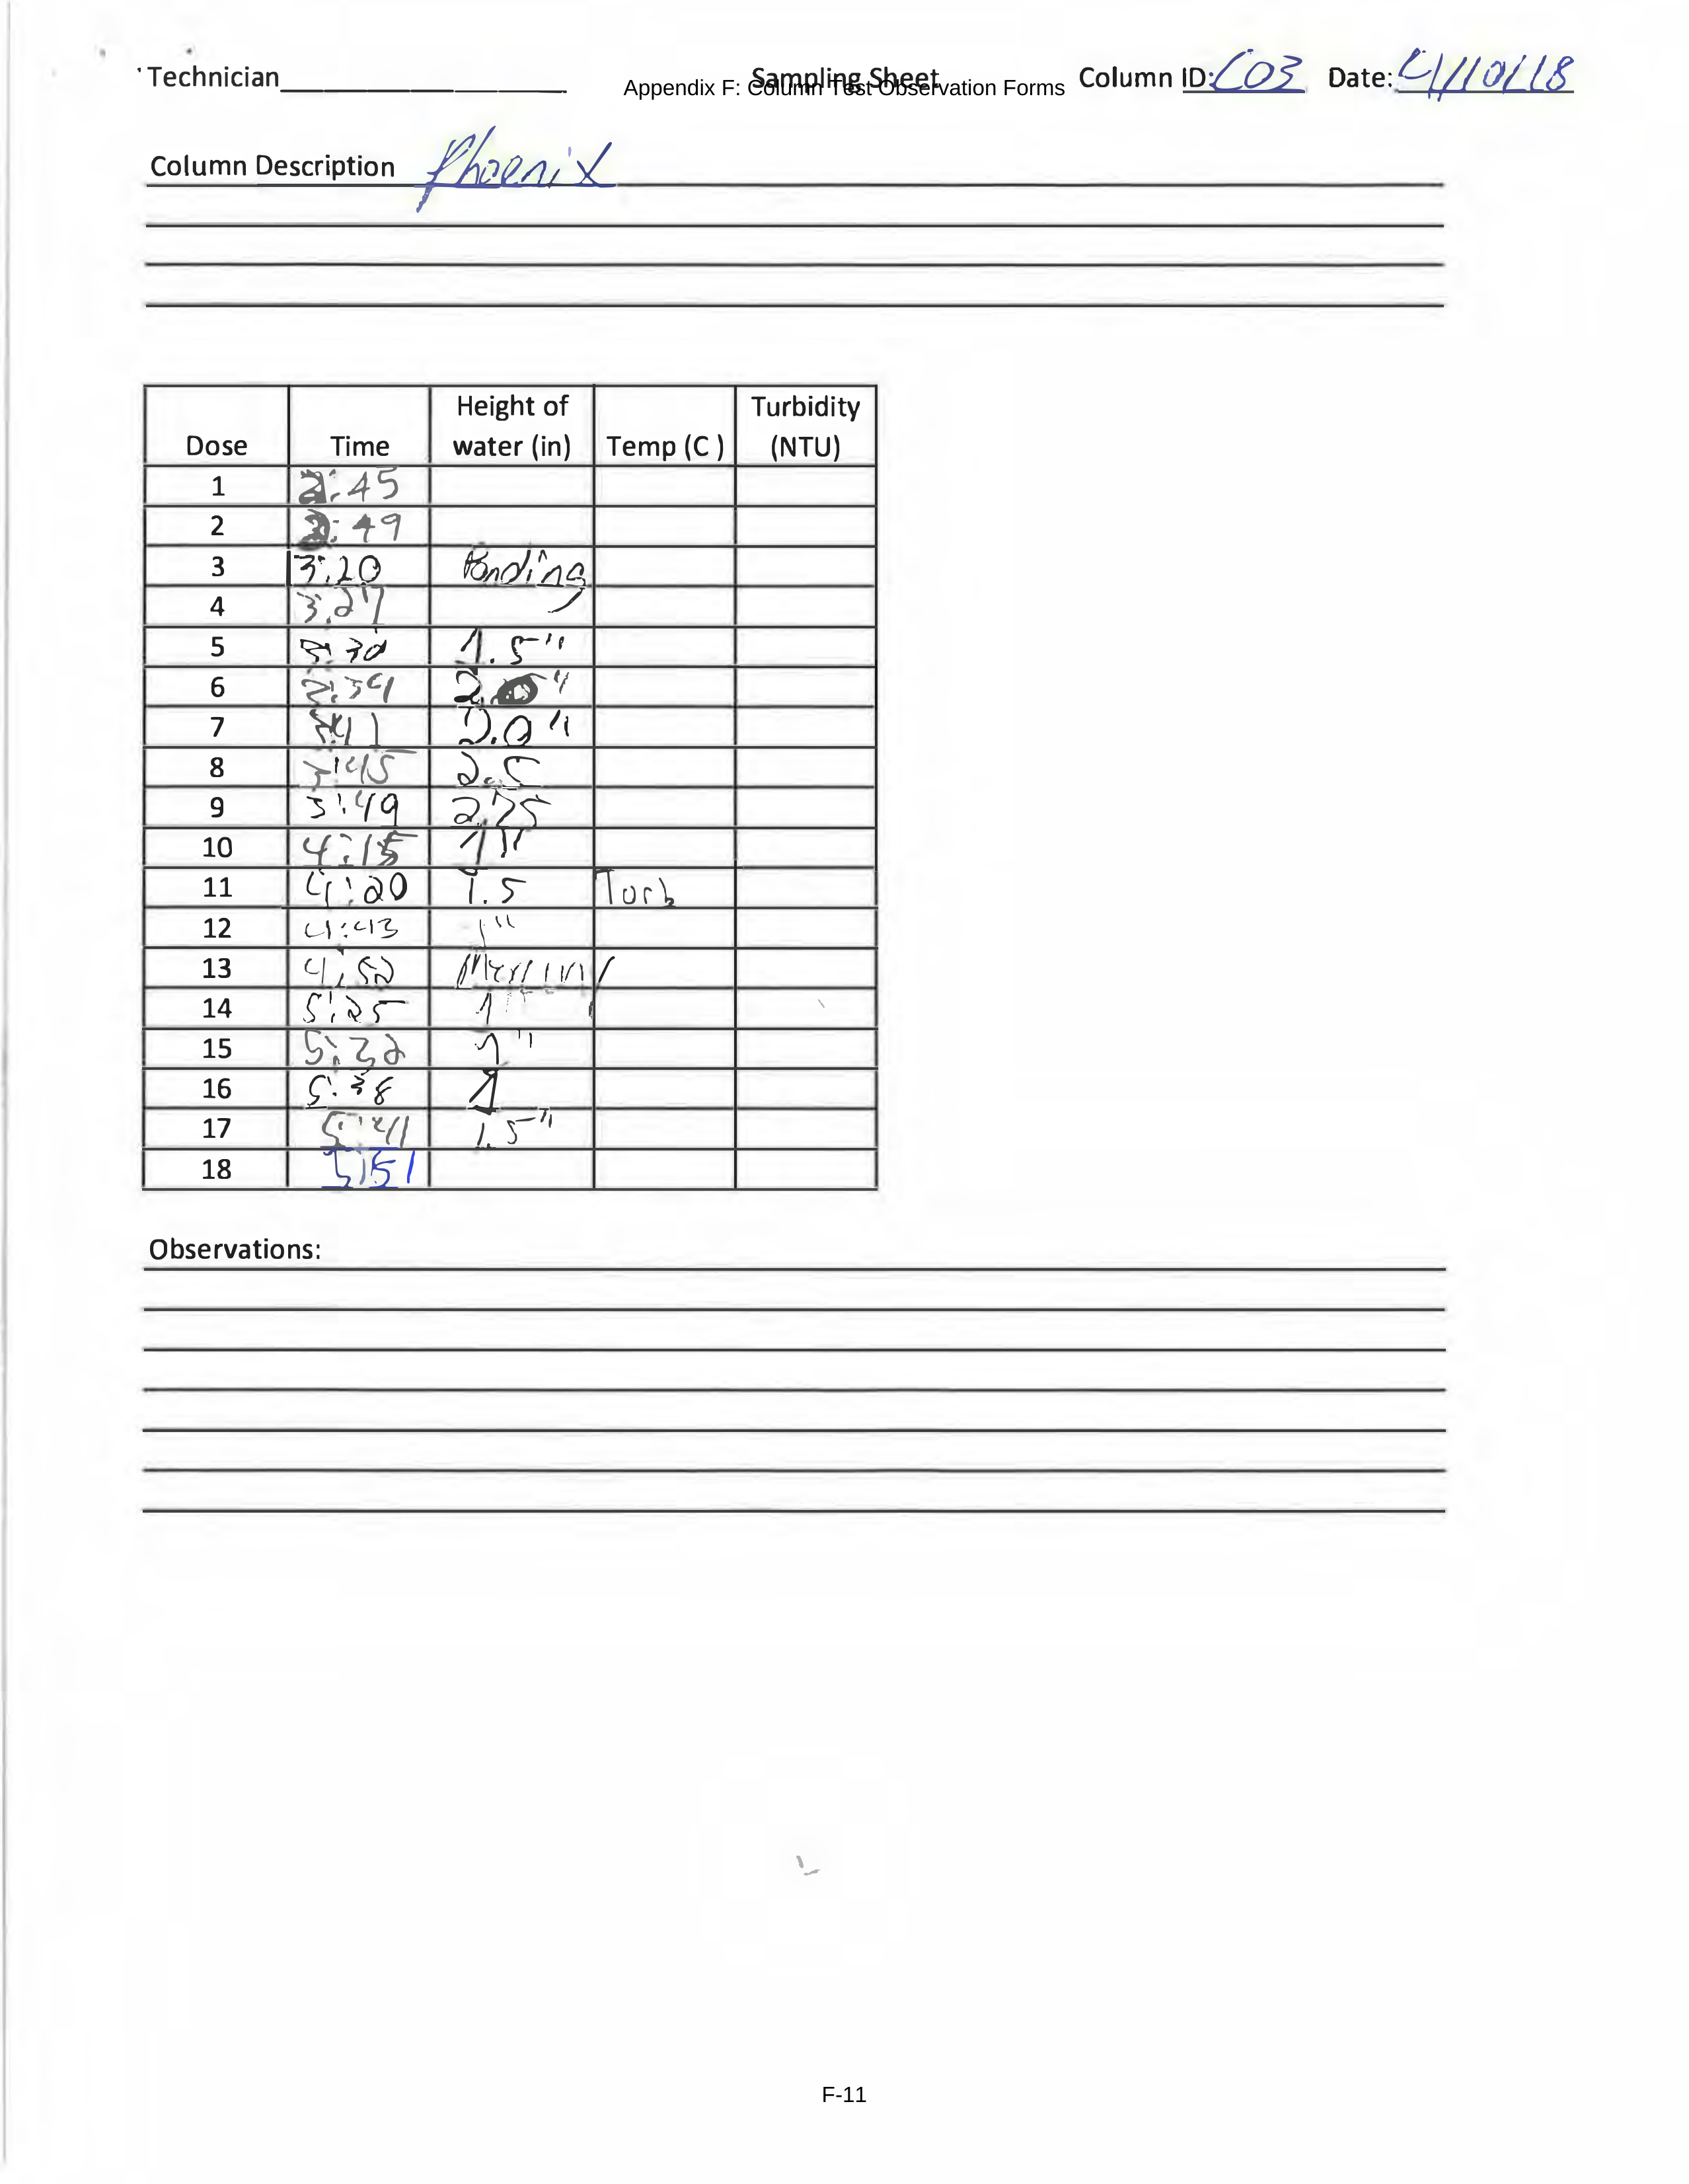 Technician Sampling Sheet Column ID: C03 Date: 4/10/18
Appendix F: Column Test Observation Forms
Column Description Phoenix
Dose Time Height of water (in) Temp (C ) Turbidity (NTU)
1 2:45
2 2:49
3 3:20 Ponding
4 3:27
5 3:30 1.5"
6 3:34
7 3:41 2.0"
8 3:45 2.5
9 3:49 2.75
10 4:15 1"
11 4:20 1.5 Turb
12 4:43 1"
13 4:50
14 5:25 1"
15 5:32 1"
16 5:38 1
17 5:41 1.5"
18 5:51
Observations:
F-11